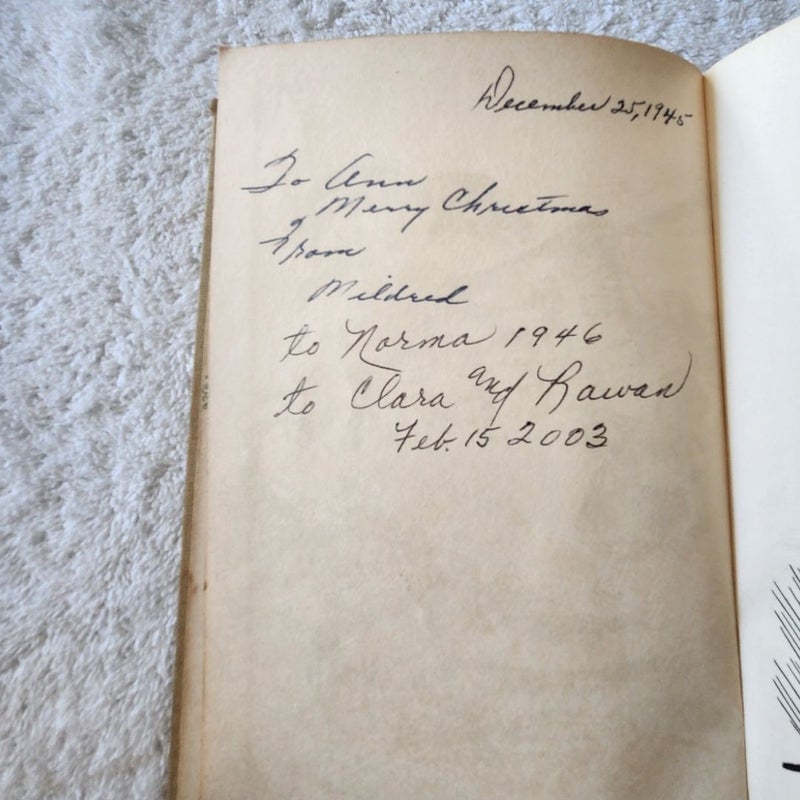 December 25, 1945
To Ann
Merry Christmas
From
Mildred
to Norma 1946
to Clara and Rawan
Feb. 15 2003